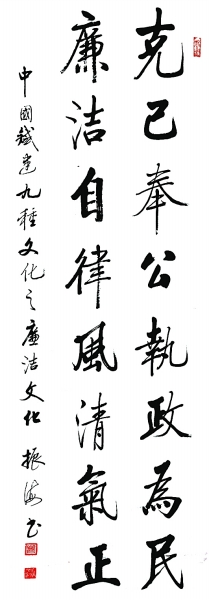 克己奉公執政為民
廉洁自律風清氣正
中國鐵建九種文化之廉洁文化 振海书